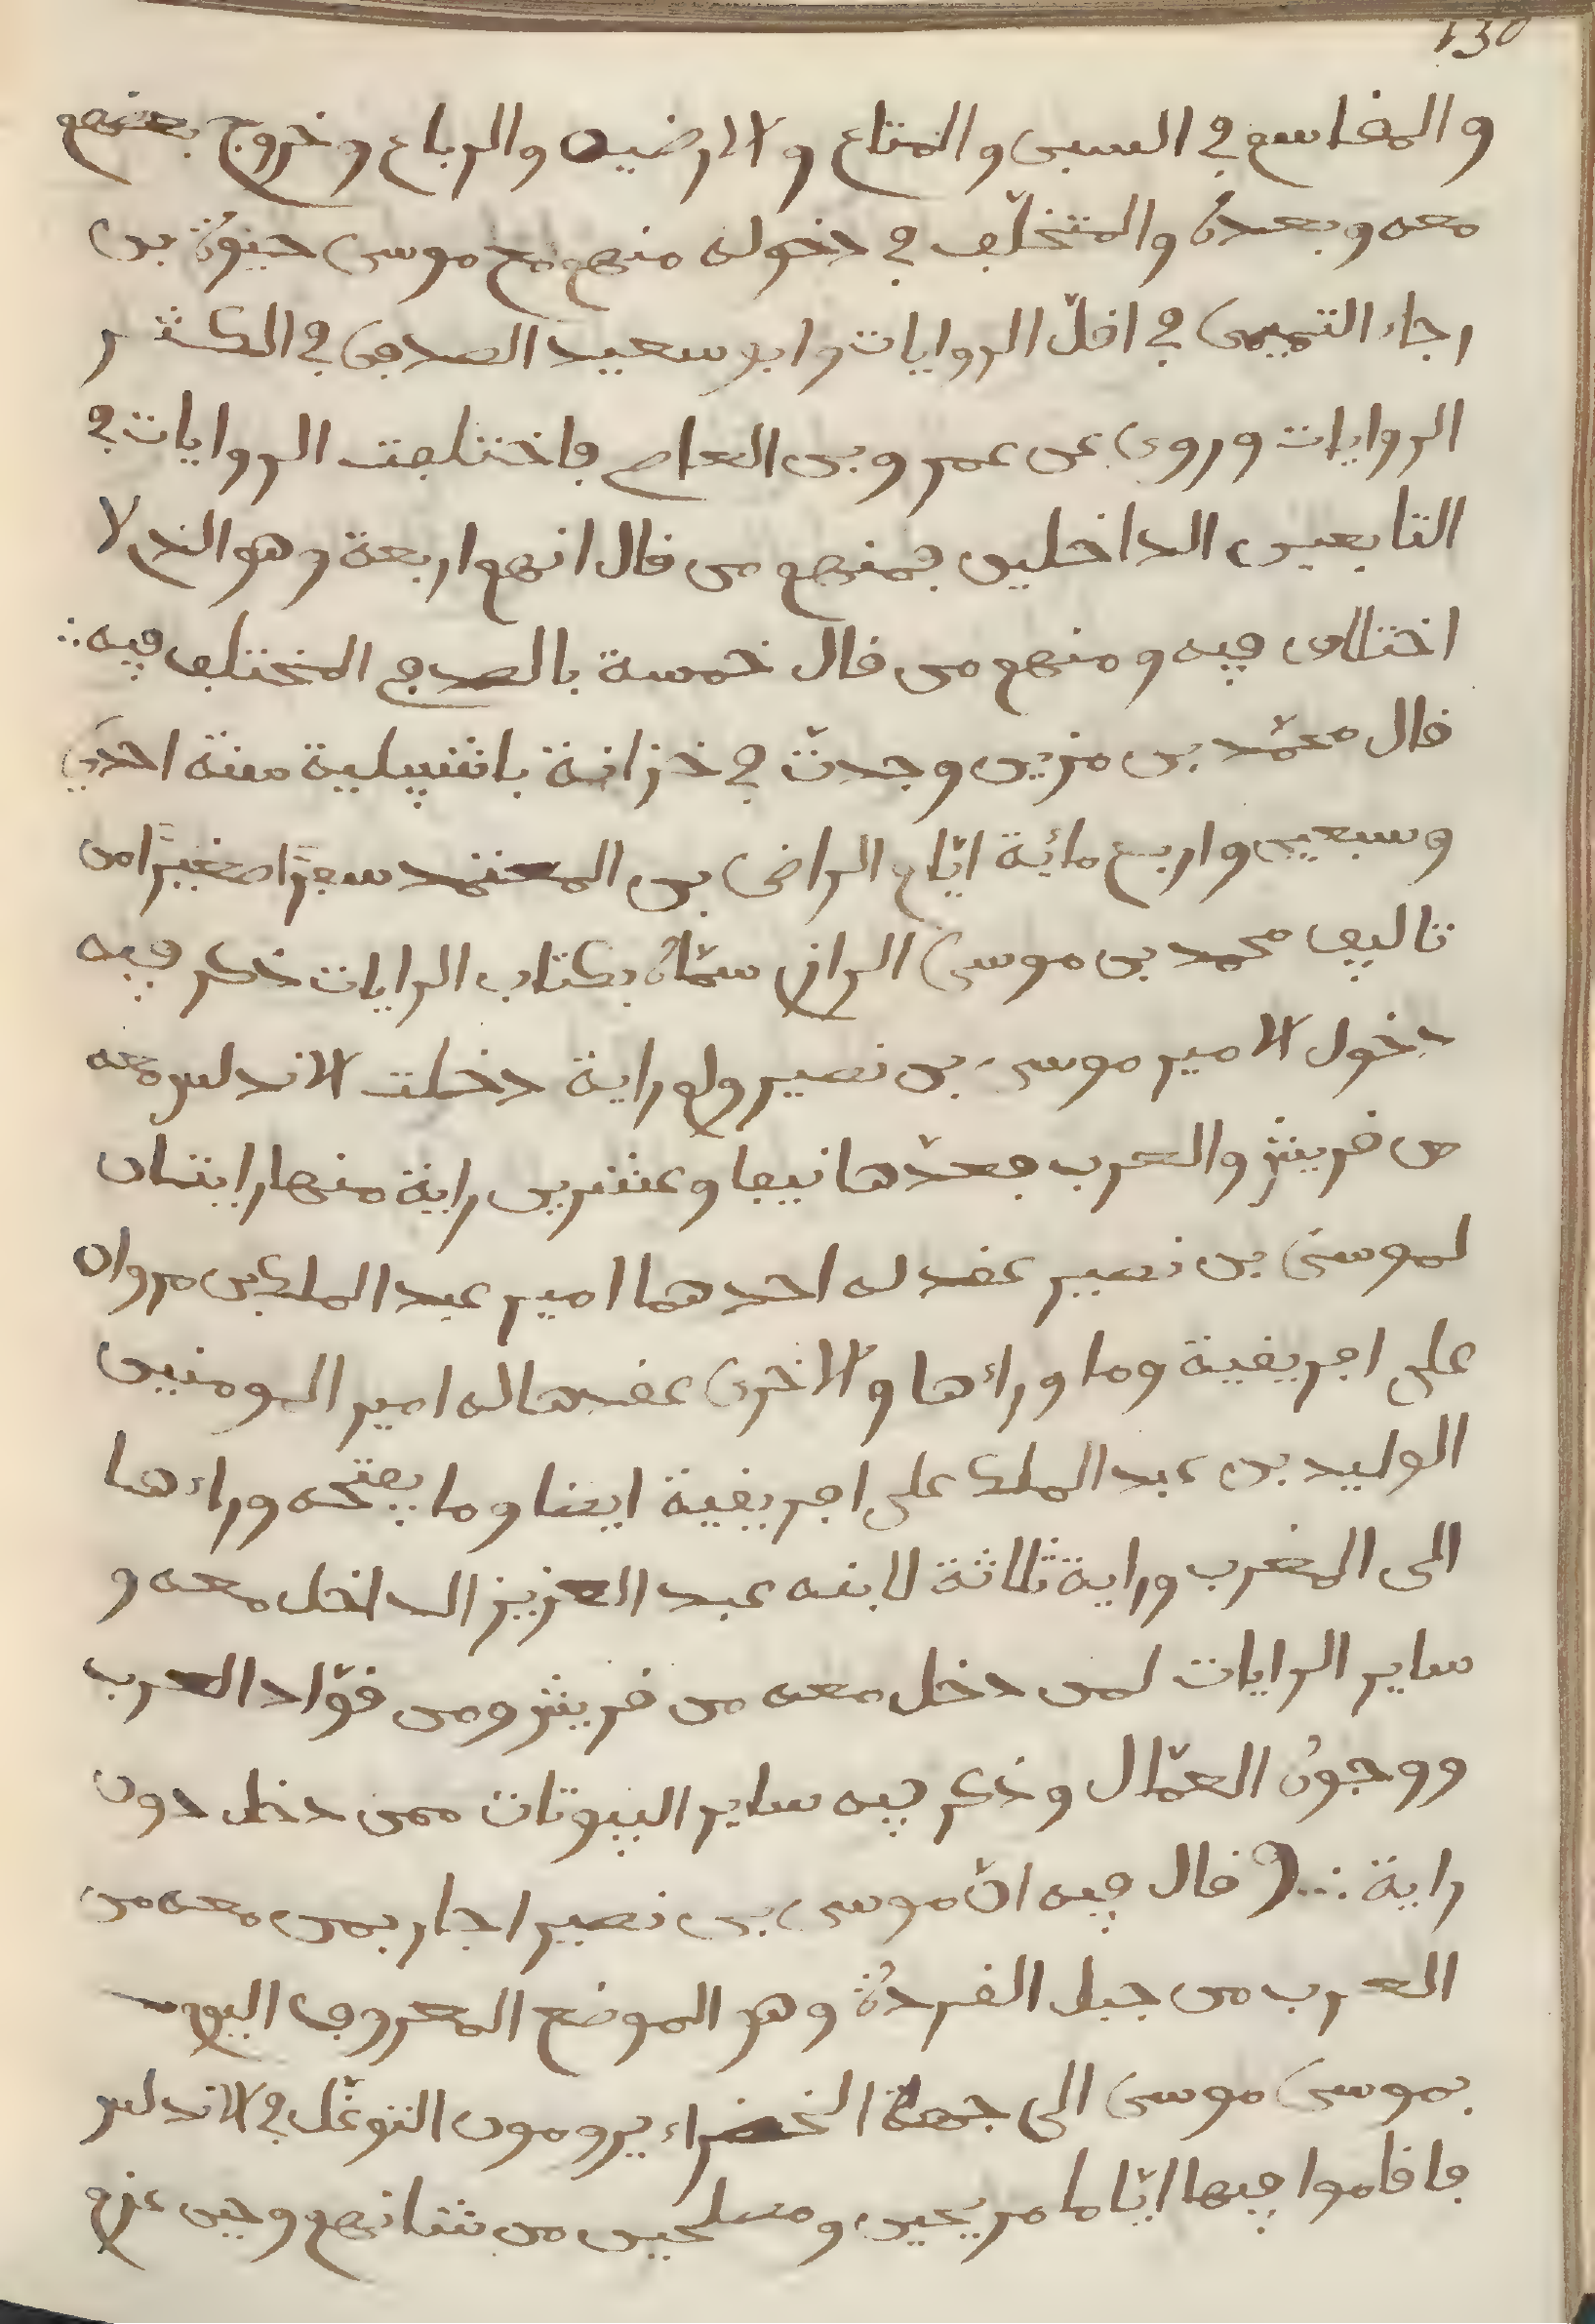 130
والمقاسم في السبى والمتاع والارضين والرباع وخروج بعضهم
معه وبعده والمتخلّف في دخوله منهم مع موسى حيوة بن
رجاء التميمى في اقلّ الروايات وابو سعيد الصدفى في اكثر
الروايات وروى عن عمرو بن العاص فاختلفت الروايات في
التابعين الداخلين فمنهم من قال انهم اربعة وهو الذى لا
اختلاف فيه ومنهم من قال خمسة بالصدفى المختلف فيه ∴
قال محمّد بن مزين وجدتّ في خزانة باشبيلية سنة احدى
وسبعين واربع مائية ايّام الراضى بن المعتمد سفرًا صغيرًا من
تاليف محمد بن موسى الرازى سمّاه بكتاب الرايات ذكر فيه
دخول الامير موسى بن نصير وكم راية دخلت الاندلس معه
من قريش والعرب فعدّها نيفا وعشرين راية منها رايتان
لموسى بن نصير عقد له احدهما امير عبد الملك بن مروان
على افريقية وما وراءها والاخرى عقدها له امير المومنين
الوليد بن عبد الملك على افريقية ايضا وما يفتحه وراءها
الى المغرب وراية ثالثة لابنه عبد العزيز الداخل معه و
ساير الرايات لمن دخل معه من قريش ومن قوّاد العرب
ووجوه العمّال وذكر فيه ساير البيوتات ممن دخل دون
راية ∴ قال فيه انّ موسى بن نصير اجاز بمن معه من
العرب من جبل القردة وهو الموضع المعروف اليوم
بموسى موسى الى جهة الخضراء يرومون التوغّل في الاندلس
فاقاموا فيها ايّاما مريحين ومصلحين من شانهم وحين عزم